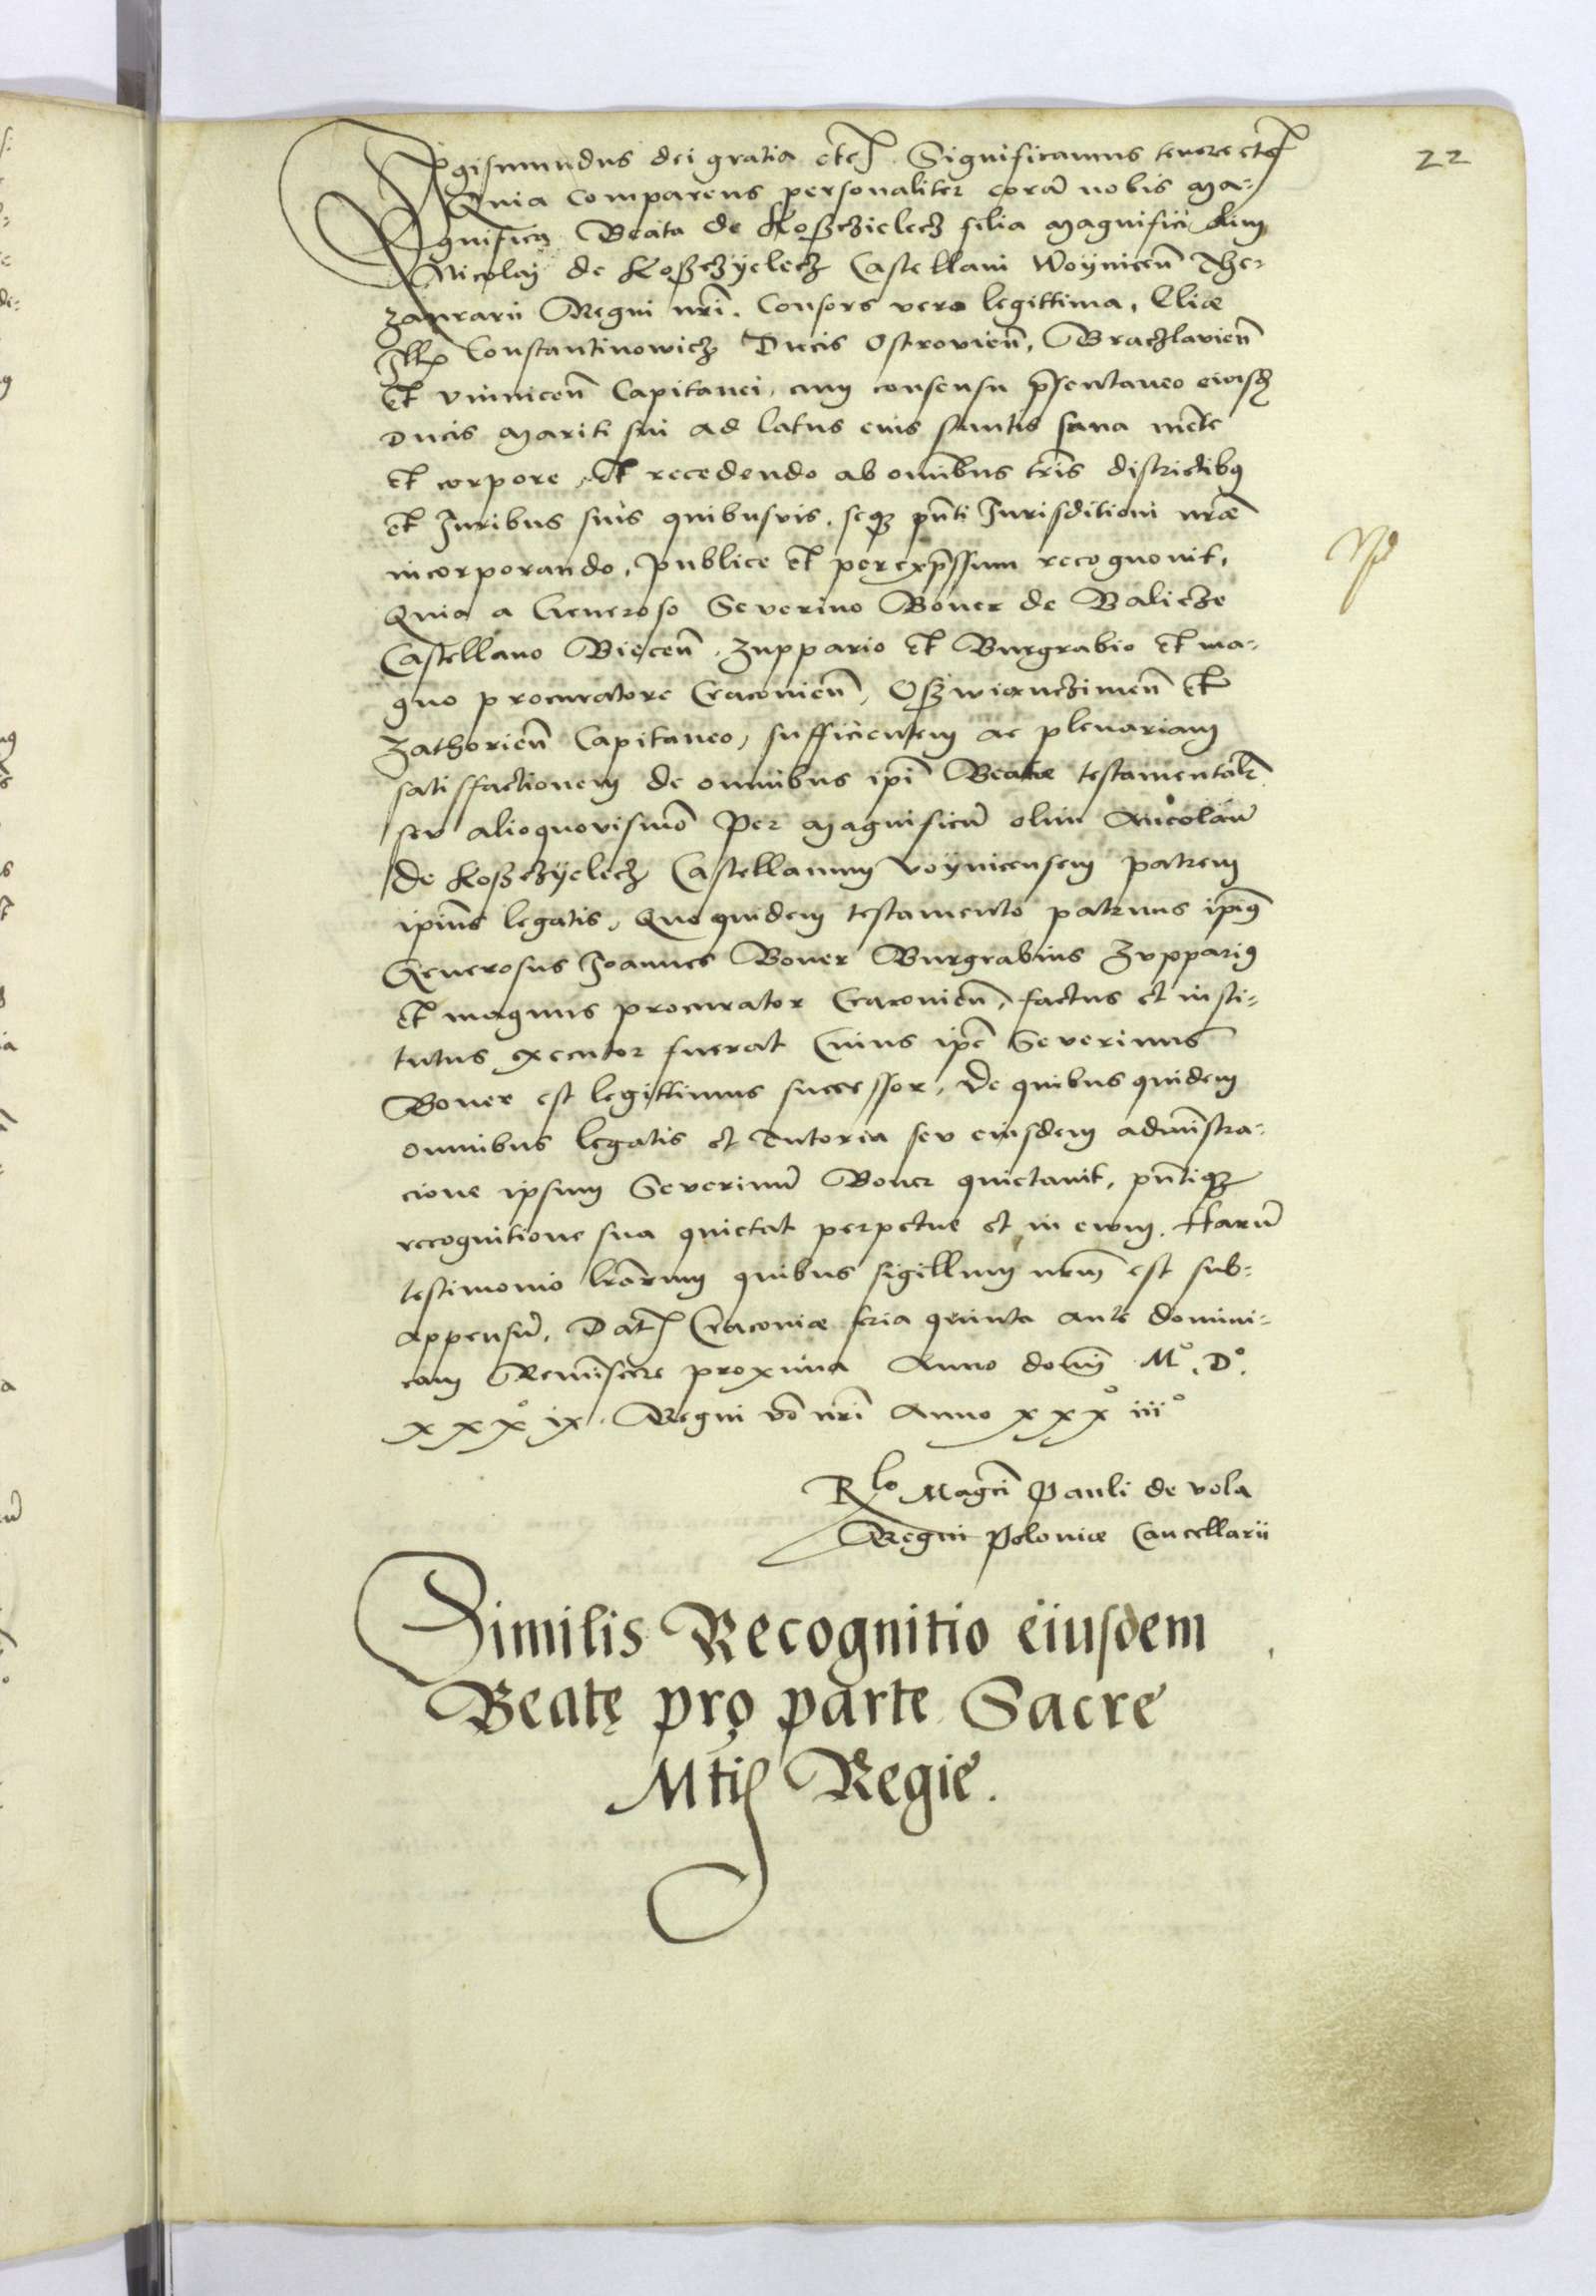 22
Sigismundus dei gratia etc. Significamus tenore etc.
Quia comparens personaliter corã nobis Ma-
gnifica Beata de Koßczielecz filia Magnifici olim
Nicolaj de Koßczÿelecz Castellani Woÿnicen̄ The-
zaurarii Regni nr̄i. Consors vero legittima, Eliae
Constantinowicz Ducis Ostrovien̄, Braczlavien̄
Et vinnicen̄ Capitanei, cum consensu p̄sentaneo eiusd
Ducis Mariti sui ad latus eius stantis sana mēte
Et corpore, Et recedendo ab omībus tr̄is districtibꝰ
Et Juribus suis quibusvis, seqꝫ pn̄ti Jurisditioni nr̄ae
incorporando, publice Et per exp̄ssum recognovit,
Quia a Generoso Severino Boner de Balicze
Castellano Biecen̄, zuppario Et Burgrabio Et ma-
gno procuratore Cracovien̄, Oßwianczimen̄ Et
Zathorien̄ Capitaneo, sufficientem ac plenariam
satisfactionem de omnibus ip̄i Beatae testamentalr̄
seu alioquovismō per Magnificũ olim Nicolaũ
de Koßczÿelecz Castellanum Voÿnicensem patrem
ip̄ius legatis, Quo quidem testamento patruus ip̄iꝰ
Generosus Joannes Boner Burgrabius Zuppariꝰ
Et magnus procurator Cracovien̄, factus et insti-
tutus executor fuerat Cuius ip̄e Severinus
Boner est legittimus successor, De quibus quidem
omnibus legatis et Tutoria seu eiusdem admīstra-
cione ipsum Severinũ Boner quietavit, pn̄tiqꝫ
recognitione sua quietat perpetue et in evum. Harũ
testimonio lr̄arum quibus sigillum nr̄m est sub-
appensũ, Dat Cracoviae feria quinta ante domini-
cam Reminiscere proxima Anno domī M°. D°.
xxx° ix. Regni vō nr̄i Anno xxx° iii°
Rlo Magci Pauli de vola
Regni Poloniae Cancellarii
Similis Recognitio eiusdem
Beatę pro parte Sacre
Mtis Regie.